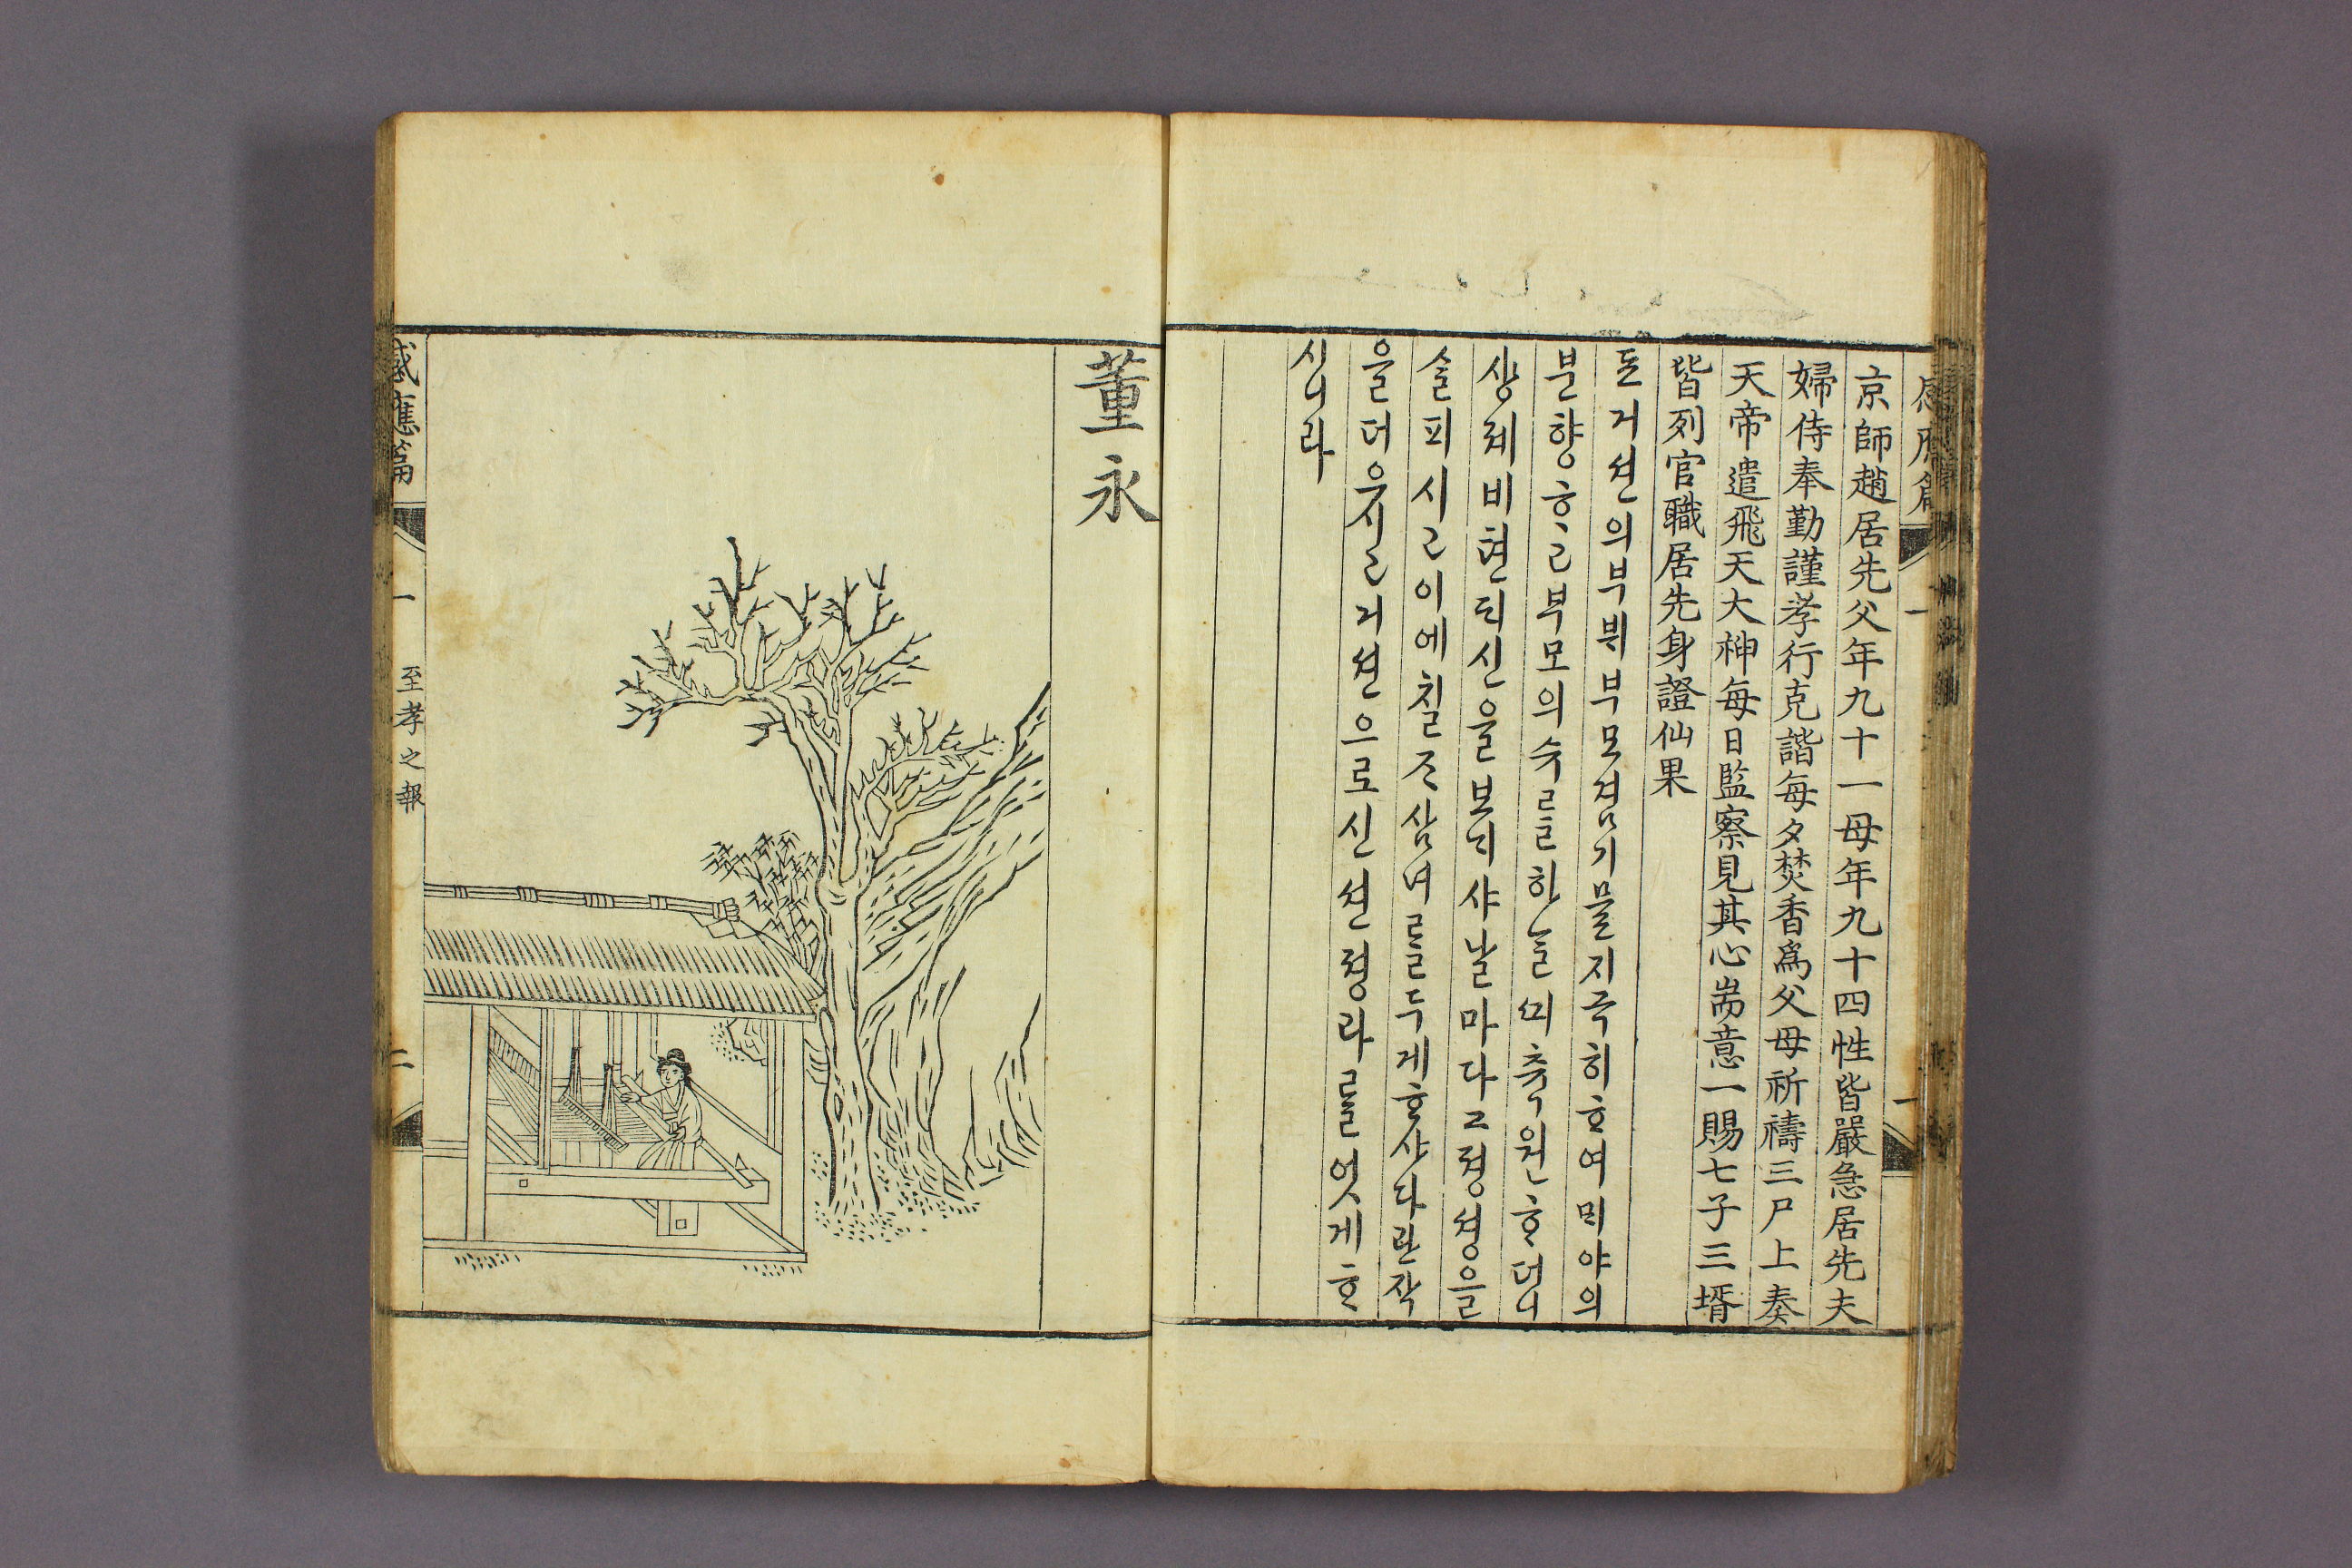 感應篇 一 一
京師趙居先父年九十一母年九十四性皆嚴急居先夫
婦侍奉勤謹孝行克諧每夕焚香爲父母祈禱三尸上奏
天帝遣飛天大神每日監察見其心耑意一賜七子三壻
皆列官職居先身證仙果
됴거션의부뷔부모셤기믈지극히ᄒᆞ여ᄆᆡ야의
분향ᄒᆞ고부모의슈ᄅᆞᆯ하ᄂᆞᆯᄭᅴ축원ᄒᆞ더니
샹졔비텬ᄃᆡ신을보ᄂᆡ샤날마다그졍셩을
슬피시고이에칠ᄌᆞ삼녀ᄅᆞᆯ두게ᄒᆞ샤다관작
을더으시고거션으로신션졍과ᄅᆞᆯ엇게ᄒᆞ
시니라
董永
感應篇 一 至孝之報 二